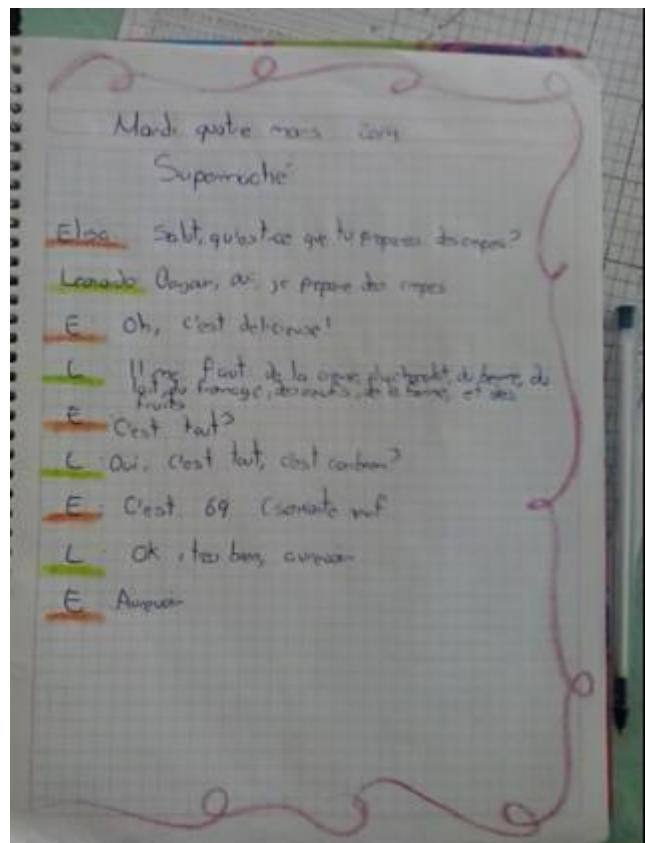 Mardi quatre mars 2014
Supermaché
Elisa Salut, qu'est-ce que tu prepares des crepes?
Leonardo oui, je prepare des crepes
E: Oh, c'est delicieuse!
L Il me faut de la du beurre, du
lait du fromage, des oeufs, de la et des
fruits
E C'est tout?
L Oui, c'est tout, c'est combien?
E: C'est 69 (soixante neuf
L: Ok, tres bien, aurevoir
E Aurevoir